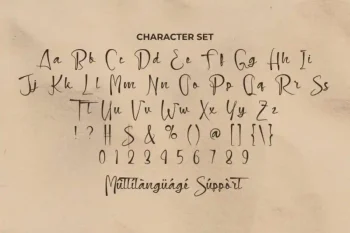 CHARACTER SET
Aa Bb Cc Dd Ee Ff Gg Hh Ii
Jj Kk Ll Mm Nn Oo Pp Qq Rr Ss
Tt Uu Vv Ww Xx Yy Zz
! ? # $ & % ( ) @ [ ] { \ }
0 1 2 3 4 5 6 7 8 9
Múltilàngüágé Súppòrt